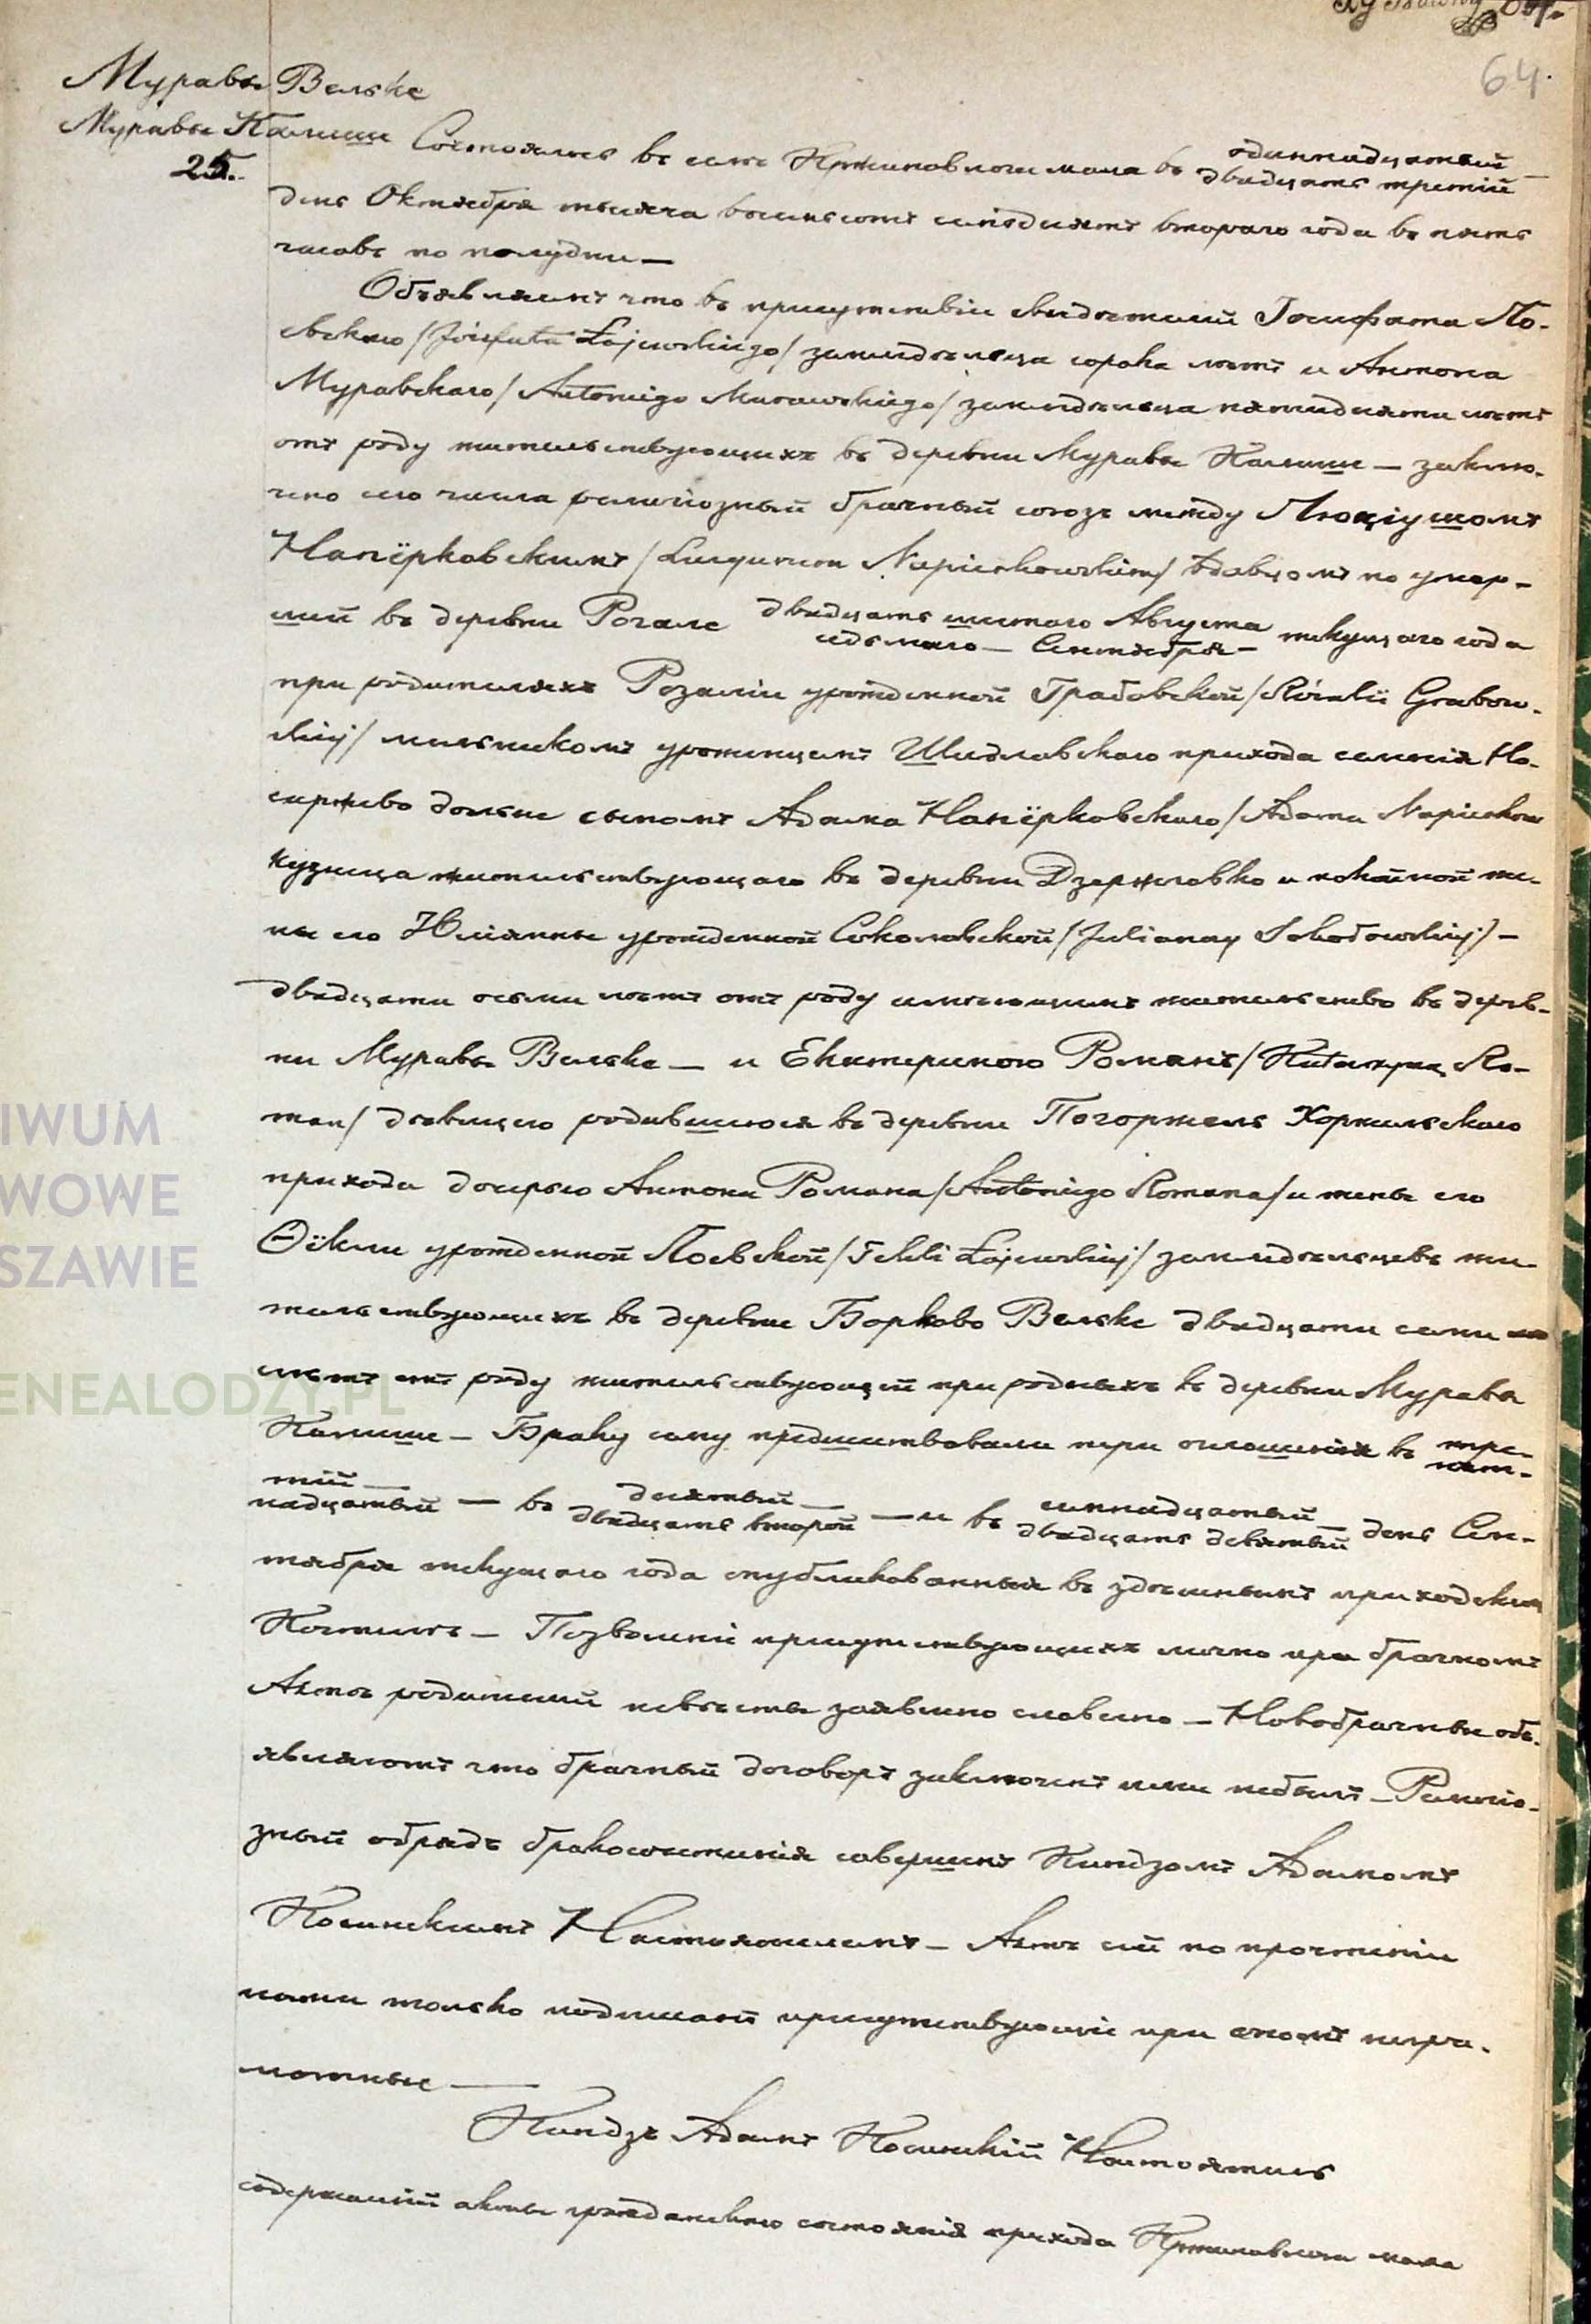 64.
Муравы Вельке
Муравы Камише
25.
Состоялось въ селе Кржиновлога мала въ одиннадцатый / двадцать третій
день Октября тысяча восемьсотъ семьдесятъ втораго года въ пять
часовъ по полудни —
Объявляемъ что въ присутствіи свидетелей Іосифата Ло-
евскаго /Józefata Łojewskiego/ земледельца сорока летъ и Антона
Муравскаго /Antoniego Murawskiego/ земледельца пятидесяти летъ
отъ роду жительствующихъ въ деревни Муравы Камише — заклю-
чено сего числа религіозный брачный союзъ между Люціушомъ
Напёрковскимъ /Lucyuszem Napierkowskim/ вдовцомъ по умер-
шей въ деревни Рогале двадцать шестаго Августа / седьмаго — Сентября — текущаго года
при родителяхъ Розаліи урожденной Грабовской /Rózalii Grabow-
skiej/ мельникомъ уроженцемъ Шидловскаго прихода селенія Но-
сиржево дольне сыномъ Адама Напёрковскаго /Adama Napierkow
кузнеца жительствующаго въ деревни Дзержговко и покойной же-
ны его Юліянны урожденной Соколовской /Julianny Sokołowskiej/ —
двадцати осьми летъ отъ роду имеющимъ жительство въ дерев-
ни Муравы Вельке — и Екатериною Романъ /Katarzyną Ro-
man/ девицею родившеюся въ деревни Погоржель Хоржельскаго
прихода дочерью Антона Романа /Antoniego Romana/ и жены его
Ѳёкли урожденной Лоевской /Tekli Łojewskiej/ земледельцевъ жи-
тельствующихъ въ деревне Борково Вельке двадцати семи
летъ отъ роду жительствующей при родныхъ въ деревни Муравы
Камише — Браку сему предшествовали три оглашенія въ тре- / пят-
тій — / надцатый — въ десятый — / двадцать второй — и въ семнадцатый — / двадцать девятый день Сен-
тября текущаго года опубликованныя въ здешнемъ приходскомъ
Костеле — Позволеніе присутствующихъ лично при брачномъ
Акте родителей невесты заявлено словесно — Новобрачные объ-
являютъ что брачный договоръ заключенъ ими небылъ — Религіо-
зный обрядъ бракосочетанія совершенъ Ксендзомъ Адамомъ
Косинскимъ Настоятелемъ — Актъ сей по прочтеніи
нами только подписанъ присутствующіе при ономъ негра-
мотные —
Ксендзъ Адамъ Косинскій Настоятель
содержащій акты гражданскаго состоянія прихода Кржиновлога мала
IWUM
WOWE
SZAWIE
ENEALODZY.PL